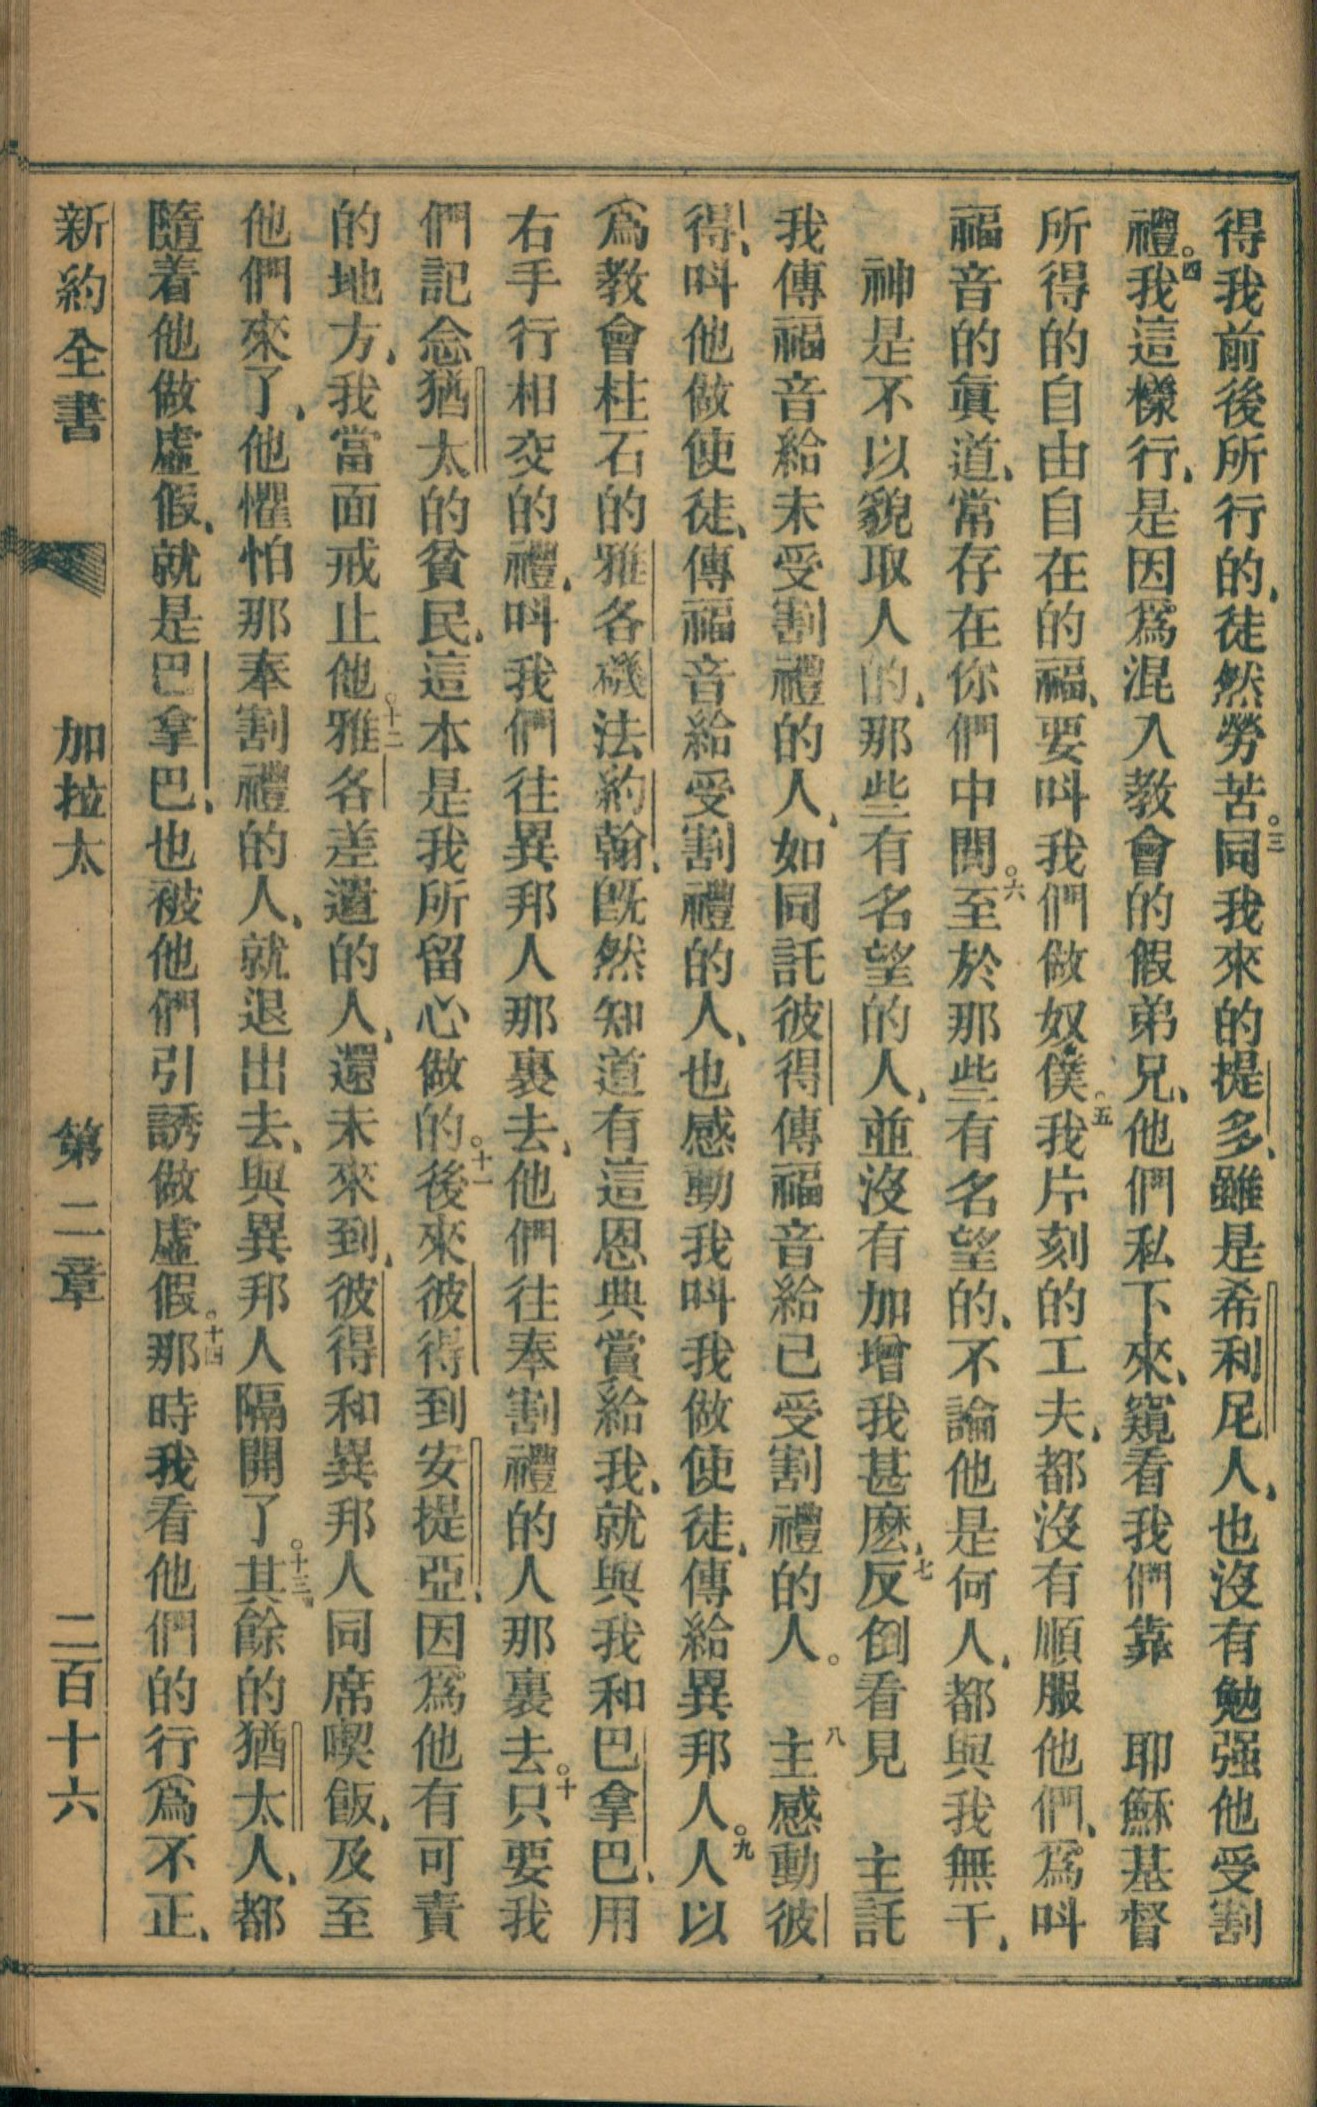 得我前後所行的、徒然勞苦。三同我來的提多、雖是希利尼人、也沒有勉强他受割
禮。四我這樣行、是因爲混入教會的假弟兄、他們私下來、窺看我們靠　耶穌基督
所得的自由自在的福、要呌我們做奴僕。五我片刻的工夫、都沒有順服他們、爲呌
福音的眞道、常存在你們中閒。六至於那些有名望的、不論他是何人、都與我無干、
神是不以貌取人的、那些有名望的人、並沒有加增我甚麽、七反倒看見　主託
我傳福音給未受割禮的人、如同託彼得傳福音給已受割禮的人。八主感動彼
得、呌他做使徒、傳福音給受割禮的人、也感動我呌我做使徒、傳給異邦人。九人以
爲教會柱石的雅各磯法約翰、旣然知道有這恩典賞給我、就與我和巴拿巴、用
右手行相交的禮、呌我們往異邦人那裏去、他們往奉割禮的人那裏去。十只要我
們記念猶太的貧民、這本是我所留心做的。十一後來彼得到安提亞、因爲他有可責
的地方、我當面戒止他。十二雅各差遣的人、還未來到、彼得和異邦人同席喫飯、及至
他們來了、他懼怕那奉割禮的人、就退出去、與異邦人隔開了。十三其餘的猶太人、都
隨着他做虛假、就是巴拿巴、也被他們引誘做虛假。十四那時我看他們的行爲不正、
新約全書　加拉太　第二章　二百十六